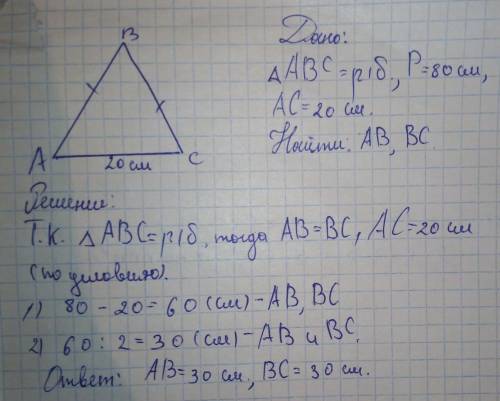 B
A
C
20 см
Дано:
△ABC = р/б, P=80 см,
AC=20 см.
Найти: AB, BC
Решение:
Т.к. △ABC=р/б, тогда AB=BC, AC=20 см
(по условию).
1) 80 - 20 = 60 (см) - AB, BC
2) 60 : 2 = 30 (см) - AB и BC.
Ответ: AB=30 см, BC=30 см.